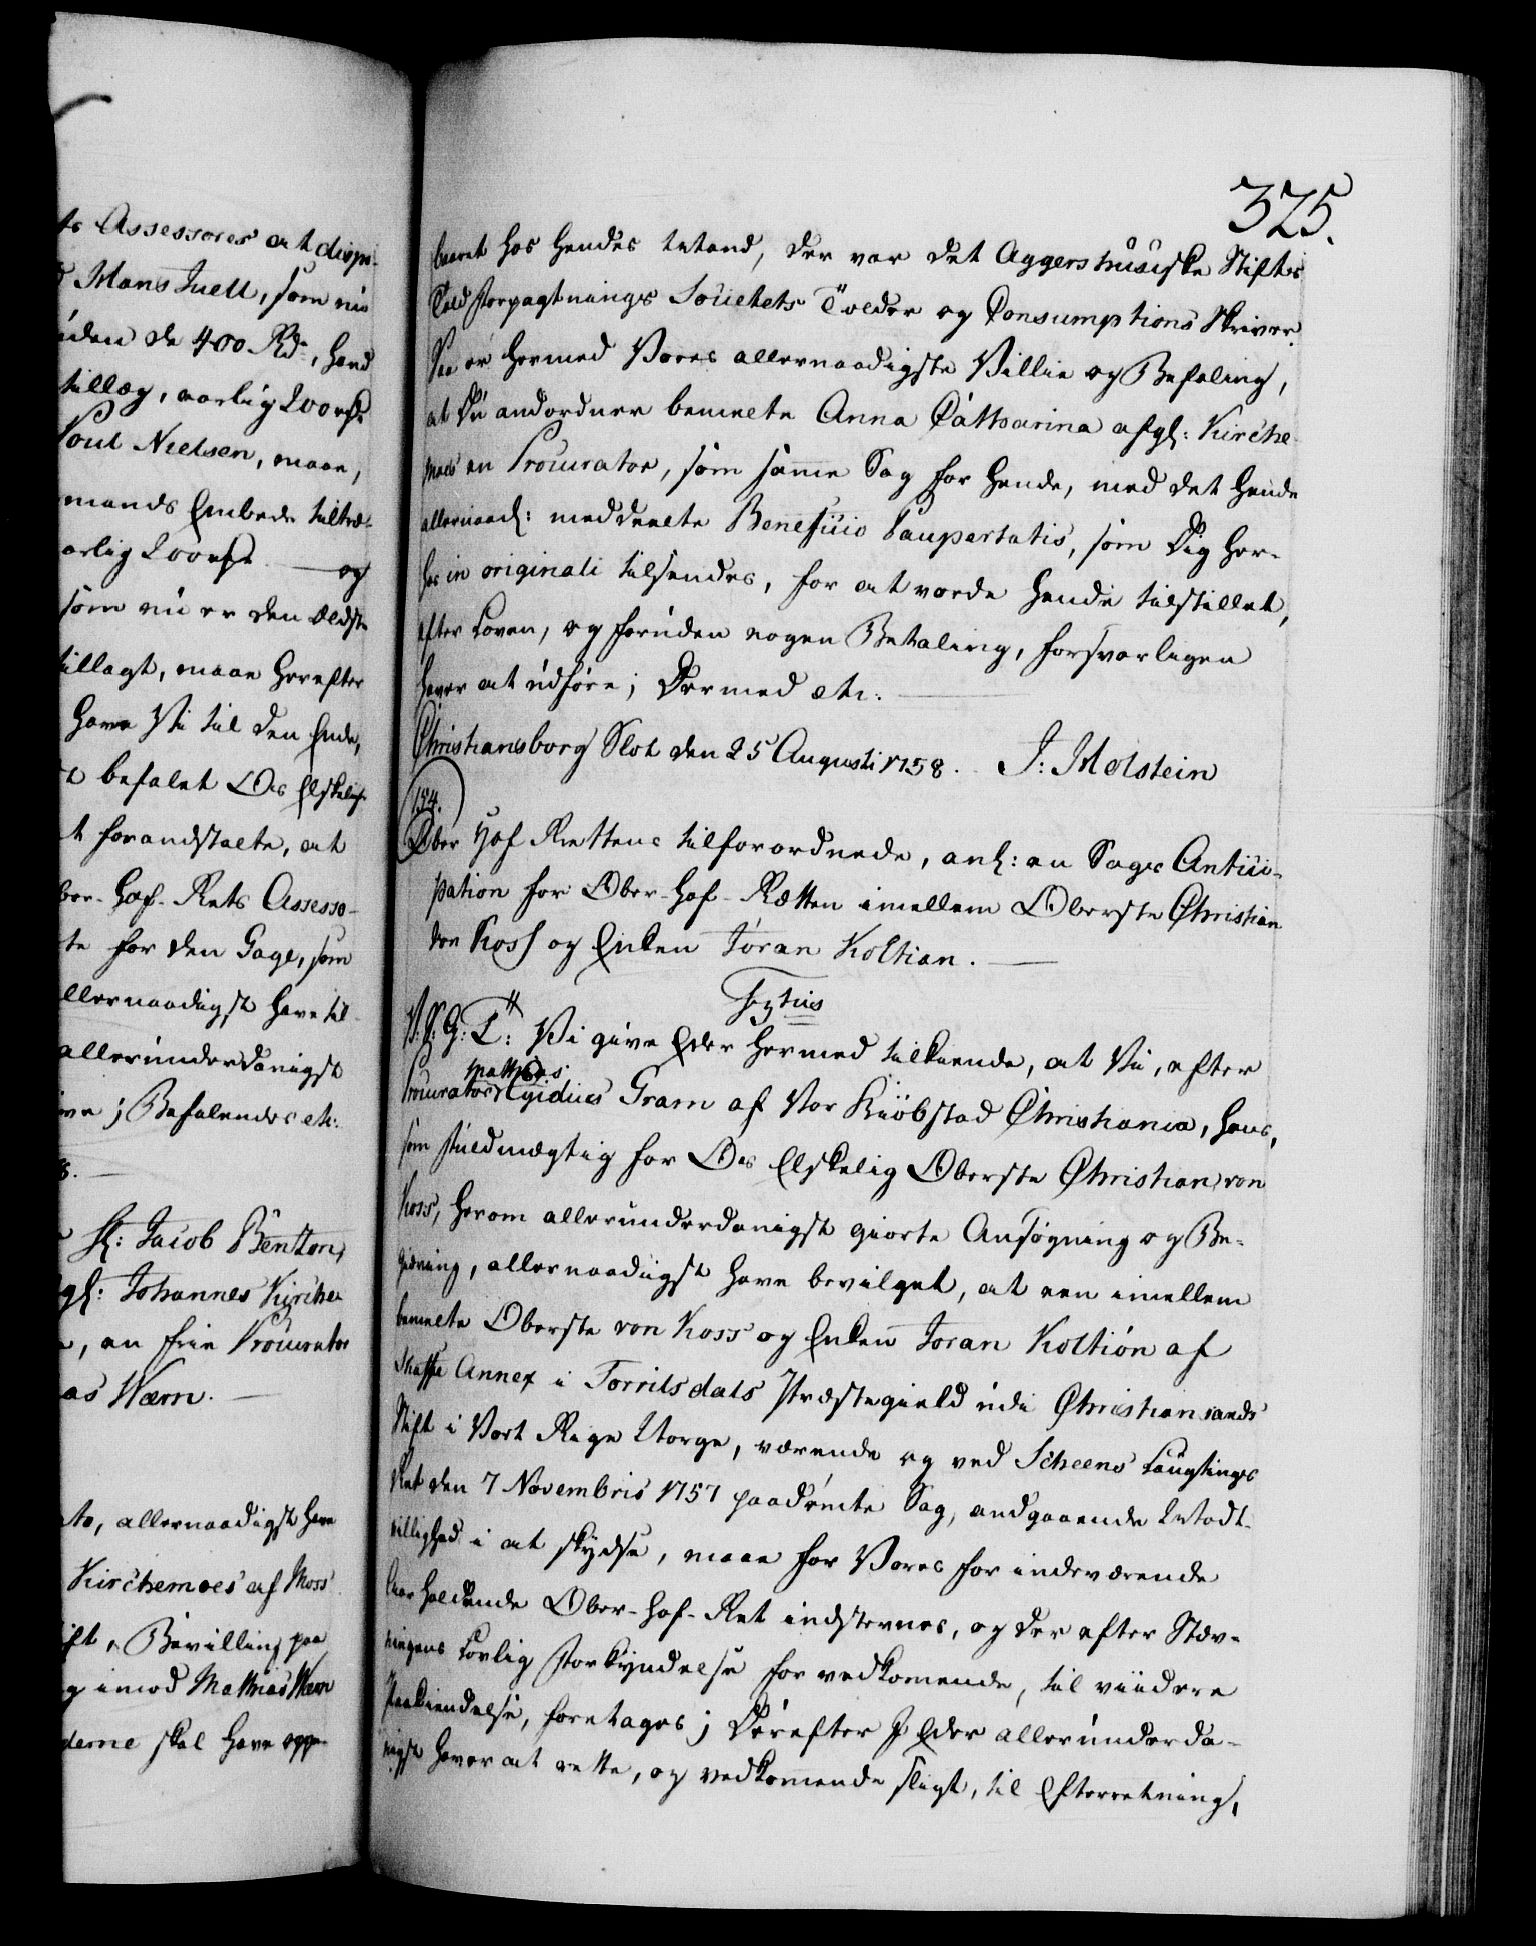 ts Assessores at dispo-
Mons Juell, som nu
uden de 400 Rd, hand
tillæg, aarlig 200 rdr
Poul Nielsen, maae,
mands Embede tiltræ-
aarlig 200 rdr — og
som nu er den Ældste
tillagt, maae herefter
have Vi til den Ende,
befalet Os Elskelig
t foranstalte, at
ber-Hof-Rets Assesso-
te for den Gage, som
llernaadigst have til
allerunderdanigst
ive; Befalendes etc:
8. —
Sl: Jacob Benzon,
gl: Johannes Kirche
, en frie Procurator
as Wærn. —
to, allernaadigst have
Kirchemoes af Moss
ift, Bevilling paa
g imod Mathias Wærn
derne skal have oppe-
325.
baaret hos hendes Mand, der var det Aggershusiske Stifts
Told Forpagtnings Societets Tolder og Consumptions Skriver.
Saa er hermed Vores allernaadigste Villie og Befaling,
at Du andordner bemelte Anna Catharina afgl: Kirche
moes en Procurator, som samme Sag for hende, med det hende
allernaad: meddeelte Beneficio Paupertatis, som Dig her-
hos in originali tilsendes, for at vorde hende tilstillet,
efter Loven, og foruden nogen Betaling, forsvarligen
haver at udføre; Dermed etc. —
Christiansborg Slot den 25 Augusti 1758. J: Holstein
154.
Ober Hof Rettens tilforordnede, anl: en Sags Antici-
pation for Ober-Hof-Rætten imellem Oberste Christian
von Koss og Enken Joran Koltian. —
V. S. G: T: Vi give Eder hermed tilkiende, at Vi, efter
Procurator Mathias Egidius Gram af Vor Kiöbstad Christiania, hans,
som Fuldmægtig for Os Elskelig Oberste Christian von
Koss, herom allerunderdanigst giorte Ansøgning og Be-
giering, allernaadigst have bevilget, at een imellem
bemelte Oberste von Koss og Enken Joran Koltion af
Skaffse Annex i Torrilsdals Præstegield udi Christiansands
Stift i Vort Rige Norge, værende og ved Scheens Laugtings
Ret den 7 Novembris 1757 paadømte Sag, andgaaende Modt-
villighed i at skydse, maae for Vores for indeværende
Aar holdende Ober-Hof-Ret indstevnes, og der efter Stæv-
ningens Lovlig Forkyndelse for vedkommende, til viidere
Paakiendelse, foretages; Derefter I Eder allerunderda-
nigst haver at rette, og vedkommende sligt, til Efterretning,